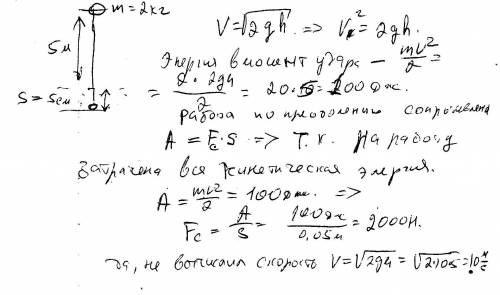 m = 2кг
5м
S = 5см
V = √2gh => V² = 2gh.
Энергия в момент удара — mv²/2 =
= 2·2gh/2 = 20·5 = 100 Дж.
работа по преодолению сопротивления
A = Fc·S => Т.к. На работу
затрачена вся кинетическая энергия.
A = mv²/2 = 100 Дж. =>
Fc = A/S = 100Дж/0,05м = 2000Н.
да, не вписал скорость V = √2gh = √2·10·5 = 10 м/с